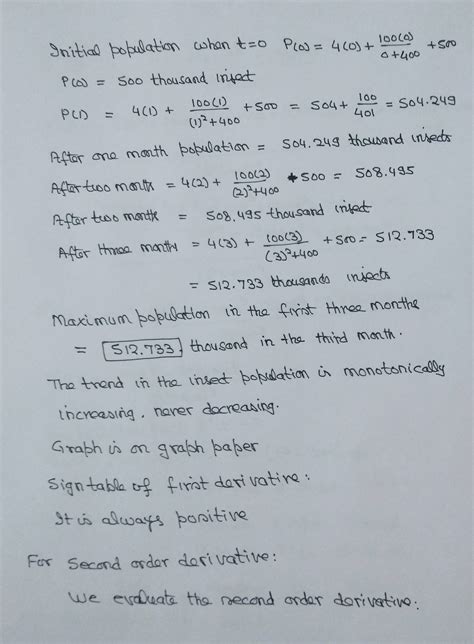 Initial population when t=0 P(0) = 4(0) + 100(0)/0+400 + 500
P(0) = 500 thousand insect
P(1) = 4(1) + 100(1)/(1)²+400 + 500 = 504 + 100/401 = 504.249
After one month population = 504.249 thousand insects
After two month = 4(2) + 100(2)/(2)²+400 + 500 = 508.495
After two month = 508.495 thousand insect
After three month = 4(3) + 100(3)/(3)²+400 + 500 = 512.733
= 512.733 thousands insects
Maximum population in the first three months
= 512.733 thousand in the third month.
The trend in the insect population is monotonically
increasing, never decreasing.
Graph is on graph paper
Sign table of first derivative:
It is always positive
For second order derivative:
We evaluate the second order derivative: